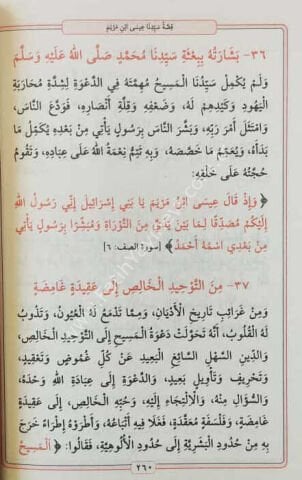 قِصَّةُ سَيِّدِنَا عِيسَى ابْنِ مَرْيَمَ
٣٦- بَشَارَتُهُ بِبِعْثَةِ سَيِّدِنَا مُحَمَّدٍ صَلَّى اللهُ عَلَيْهِ وَسَلَّمَ
وَلَمْ يُكْمِلْ سَيِّدُنَا الْمَسِيحُ مُهِمَّتَهُ فِي الدَّعْوَةِ لِشِدَّةِ مُحَارَبَةِ
الْيَهُودِ وَكَيْدِهِمْ لَهُ، وَضَعْفِهِ وَقِلَّةِ أَنْصَارِهِ، فَوَدَّعَ النَّاسَ،
وَامْتَثَلَ أَمْرَ رَبِّهِ، وَبَشَّرَ النَّاسَ بِرَسُولٍ يَأْتِي مِنْ بَعْدِهِ يُكْمِلُ مَا
بَدَأَهُ، وَيُعَمِّمُ مَا خَصَّصَهُ، وَبِهِ تَتِمُّ نِعْمَةُ اللهِ عَلَى عِبَادِهِ، وَتَقُومُ
حُجَّتُهُ عَلَى خَلْقِهِ:
﴿ وَإِذْ قَالَ عِيسَى ابْنُ مَرْيَمَ يَا بَنِي إِسْرَائِيلَ إِنِّي رَسُولُ اللهِ
إِلَيْكُمْ مُصَدِّقًا لِمَا بَيْنَ يَدَيَّ مِنَ التَّوْرَاةِ وَمُبَشِّرًا بِرَسُولٍ يَأْتِي
مِنْ بَعْدِي اسْمُهُ أَحْمَدُ ﴾ [سورة الصف: ٦]
٣٧- مِنَ التَّوْحِيدِ الْخَالِصِ إِلَى عَقِيدَةٍ غَامِضَةٍ
وَمِنْ غَرَائِبِ تَارِيخِ الْأَدْيَانِ، وَمِمَّا تَدْمَعُ لَهُ الْعُيُونُ، وَتَذُوبُ
لَهُ الْقُلُوبُ، أَنَّهُ تَحَوَّلَتْ دَعْوَةُ الْمَسِيحِ إِلَى التَّوْحِيدِ الْخَالِصِ،
وَالدِّينِ السَّهْلِ السَّائِغِ الْبَعِيدِ عَنْ كُلِّ غُمُوضٍ وَتَعْقِيدٍ،
وَتَحْرِيفٍ وَتَأْوِيلٍ بَعِيدٍ، وَالدَّعْوَةِ إِلَى عِبَادَةِ اللهِ وَحْدَهُ،
وَالسُّؤَالِ مِنْهُ، وَالِالْتِجَاءِ إِلَيْهِ، وَحُبِّهِ الْخَالِصِ، إِلَى عَقِيدَةٍ
غَامِضَةٍ، وَفَلْسَفَةٍ مُعَقَّدَةٍ، فَغَلَا فِيهِ أَتْبَاعُهُ، وَأَطْرَوْهُ إِطْرَاءً خَرَجَ
بِهِ مِنْ حُدُودِ الْبَشَرِيَّةِ إِلَى حُدُودِ الْأُلُوهِيَّةِ، فَقَالُوا: ﴿ الْمَسِيحُ
٢٦٠